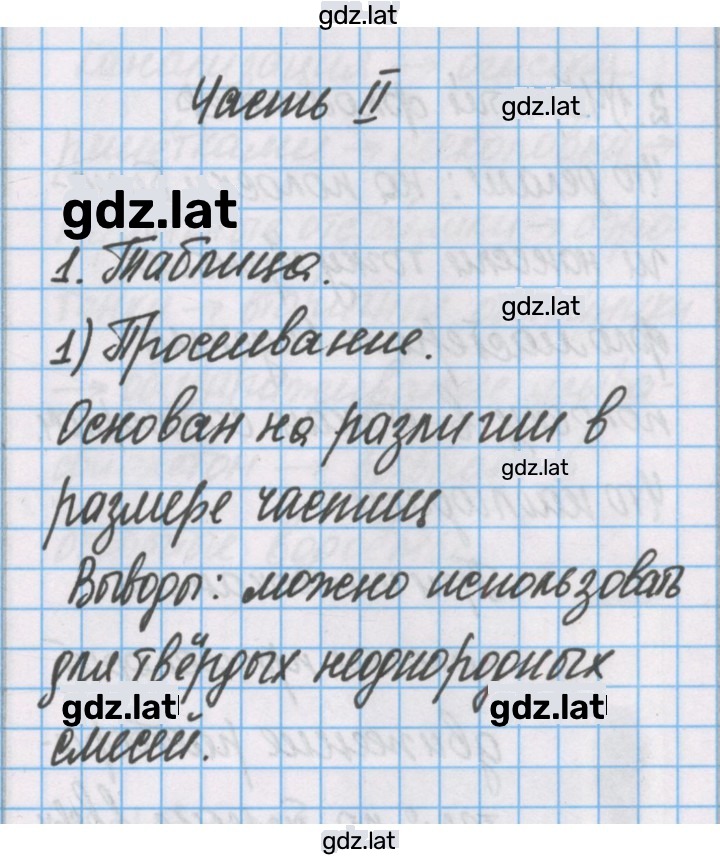 gdz.lat
Часть II
gdz.lat
gdz.lat
1. Таблица.
gdz.lat
1) Просеивание.
Основан на различии в
gdz.lat
размере частиц
Выводы: можно использовать
для твёрдых неоднородных
gdz.lat gdz.lat
смесей.
gdz.lat